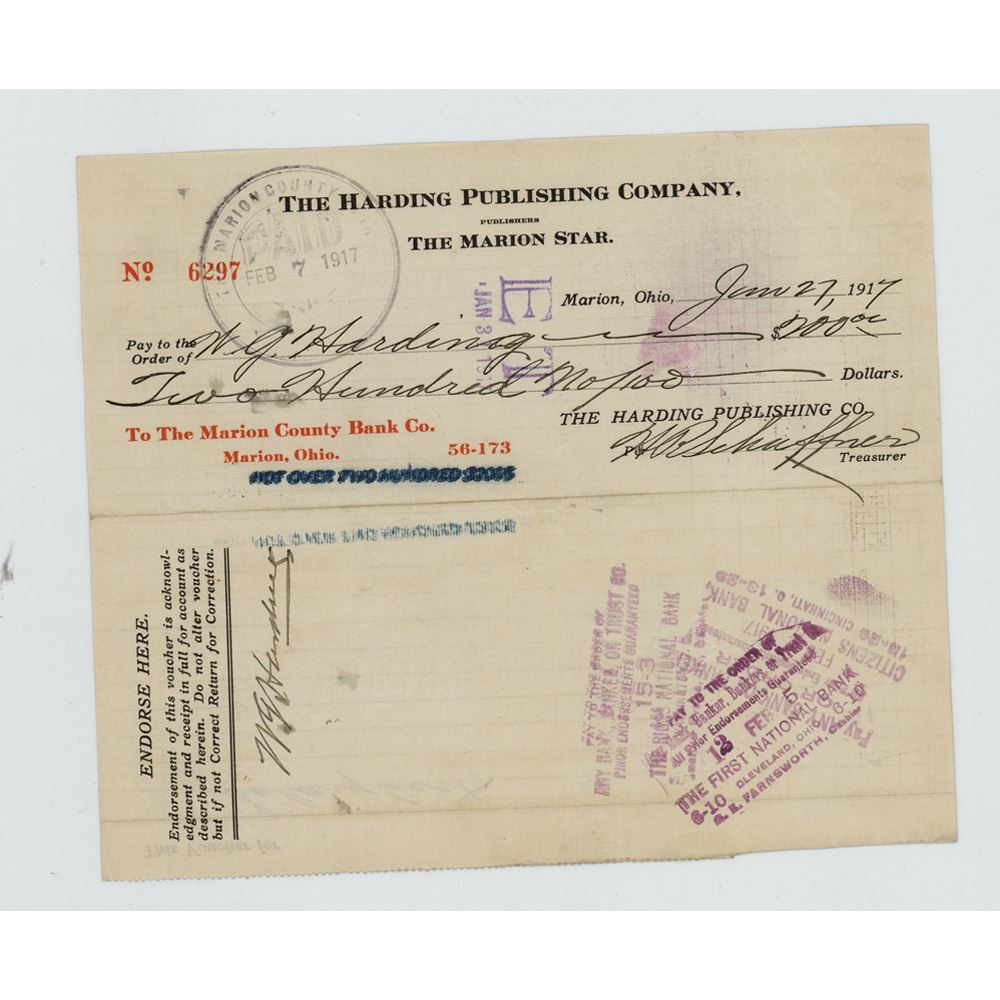 THE HARDING PUBLISHING COMPANY,
PUBLISHERS
THE MARION STAR.
MARION COUNTY
PAID
FEB 7 1917
No 6297
JAN 31
Marion, Ohio, Jan 27, 1917
Pay to the Order of W. G. Harding $200.00
Two Hundred No/100 Dollars.
THE HARDING PUBLISHING CO.
To The Marion County Bank Co.
Marion, Ohio. 56-173
Per H B Schaffner
Treasurer
NOT OVER TWO HUNDRED $200$
ENDORSE HERE.
Endorsement of this voucher is acknowl-
edgment and receipt in full for account as
described herein. Do not alter voucher
but if not Correct Return for Correction.
W G Harding
This Voucher for
PAY TO THE ORDER OF
ANY BANK, BANKER OR TRUST CO.
PRIOR ENDORSEMENTS GUARANTEED
15-3
THE RIGGS NATIONAL BANK
PAY TO THE ORDER OF
Any Bank, Banker, Bankers or Trust Co.
All Prior Endorsements Guaranteed
12 FEB 5
THE FIRST NATIONAL BANK
6-10 CLEVELAND, OHIO 6-10
FARNSWORTH, Cashier
CITIZENS NATIONAL BANK
13-29 CINCINNATI, O. 13-29